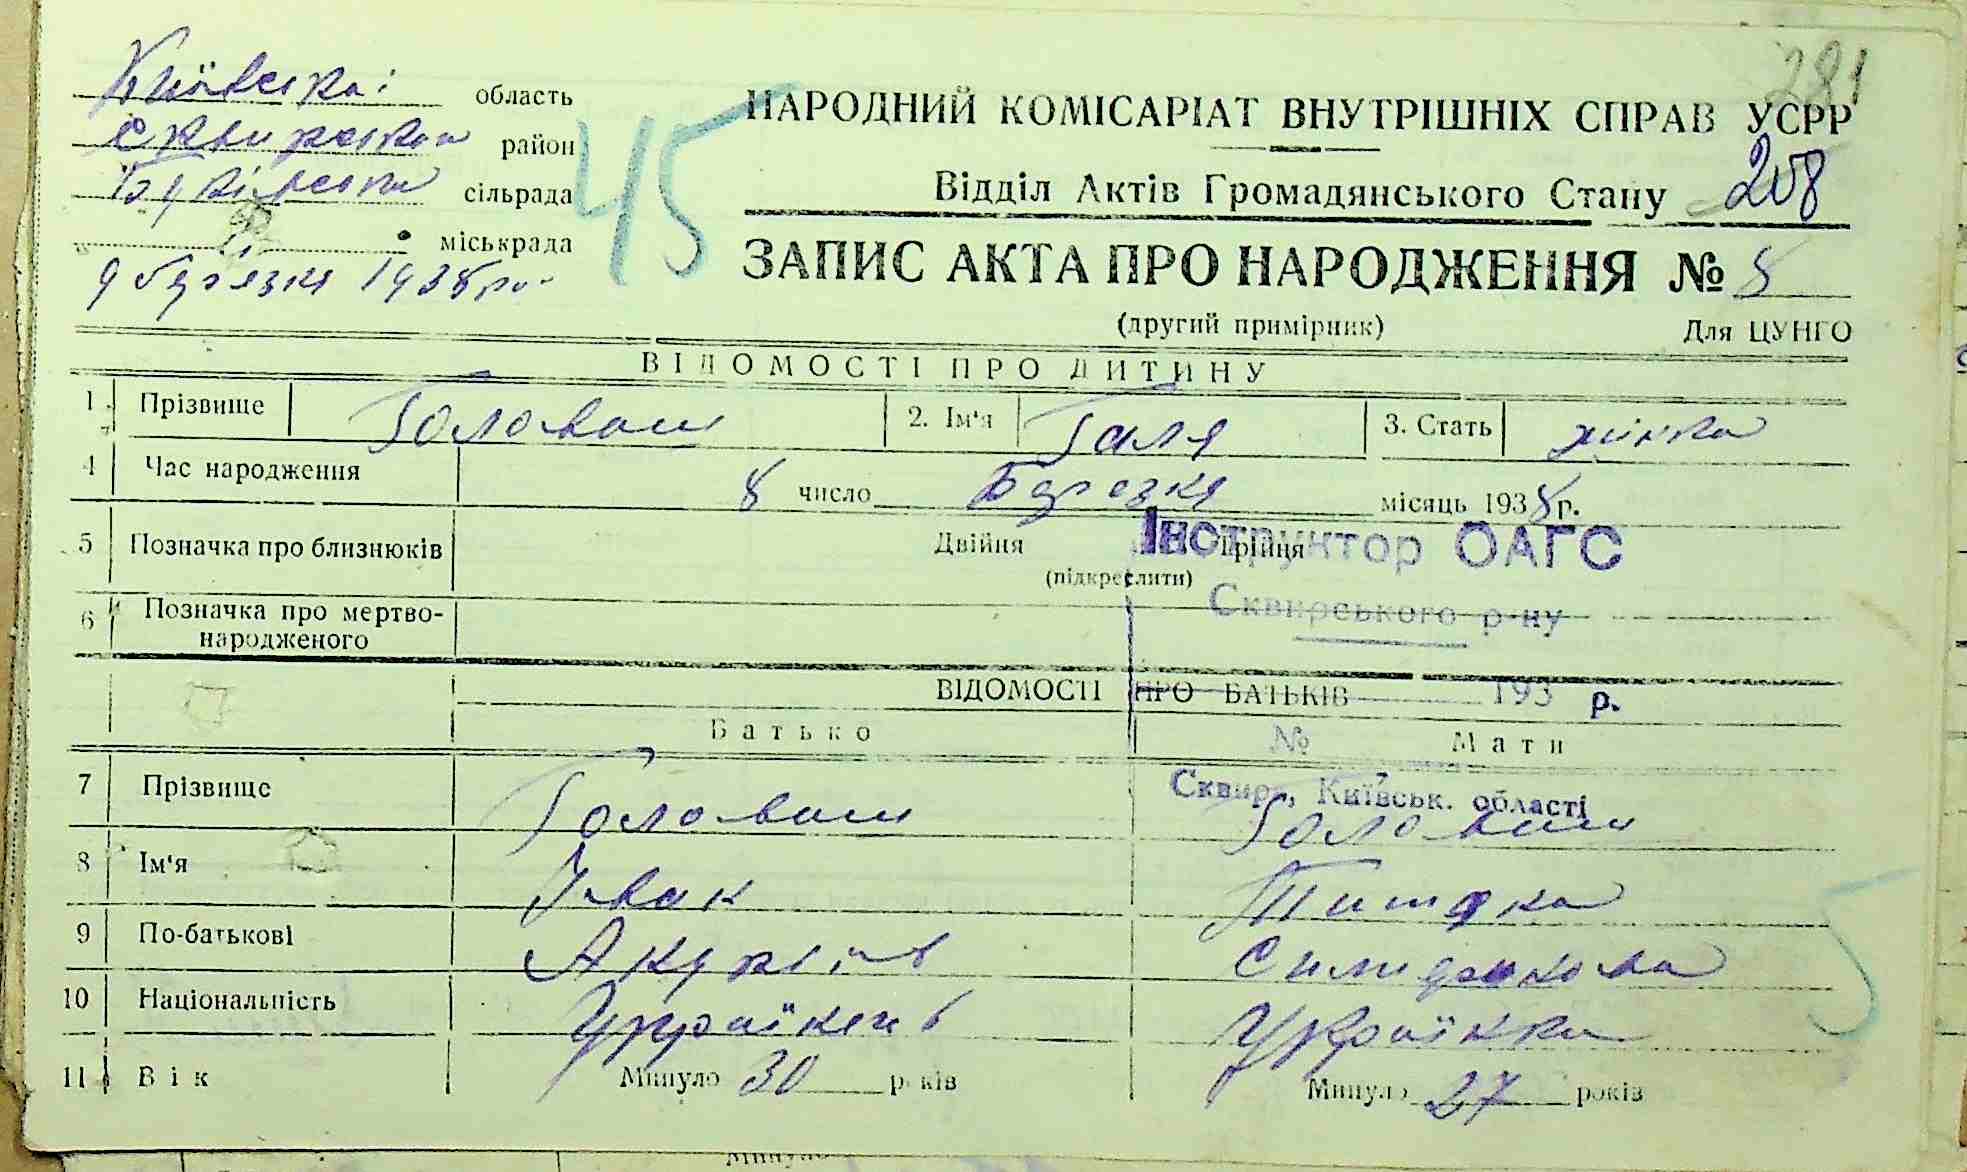 281
Київська область
Сквирська район
45
НАРОДНИЙ КОМІСАРІАТ ВНУТРІШНІХ СПРАВ УСРР
сільрада
Відділ Актів Громадянського Стану 208
міськрада
9 березня 1938 р.
ЗАПИС АКТА ПРО НАРОДЖЕННЯ № 8
(другий примірник) Для ЦУНГО
ВІДОМОСТІ ПРО ДИТИНУ
1 Прізвище Головаш 2. Ім'я Галя 3. Стать жінка
4 Час народження 8 число Березня місяць 1938 р.
5 Позначка про близнюків Двійня Трійня
(підкреслити)
Інструктор ОАГС
Сквирського р-ну
6 Позначка про мертво-
народженого
ВІДОМОСТІ ПРО БАТЬКІВ
193 р.
Батько Мати
№
Сквира, Київськ. області
7 Прізвище Головаш Головаш
8 Ім'я Іван
9 По-батькові
10 Національність Українець Українка
11 Вік Минуло 30 років Минуло 27 років
5